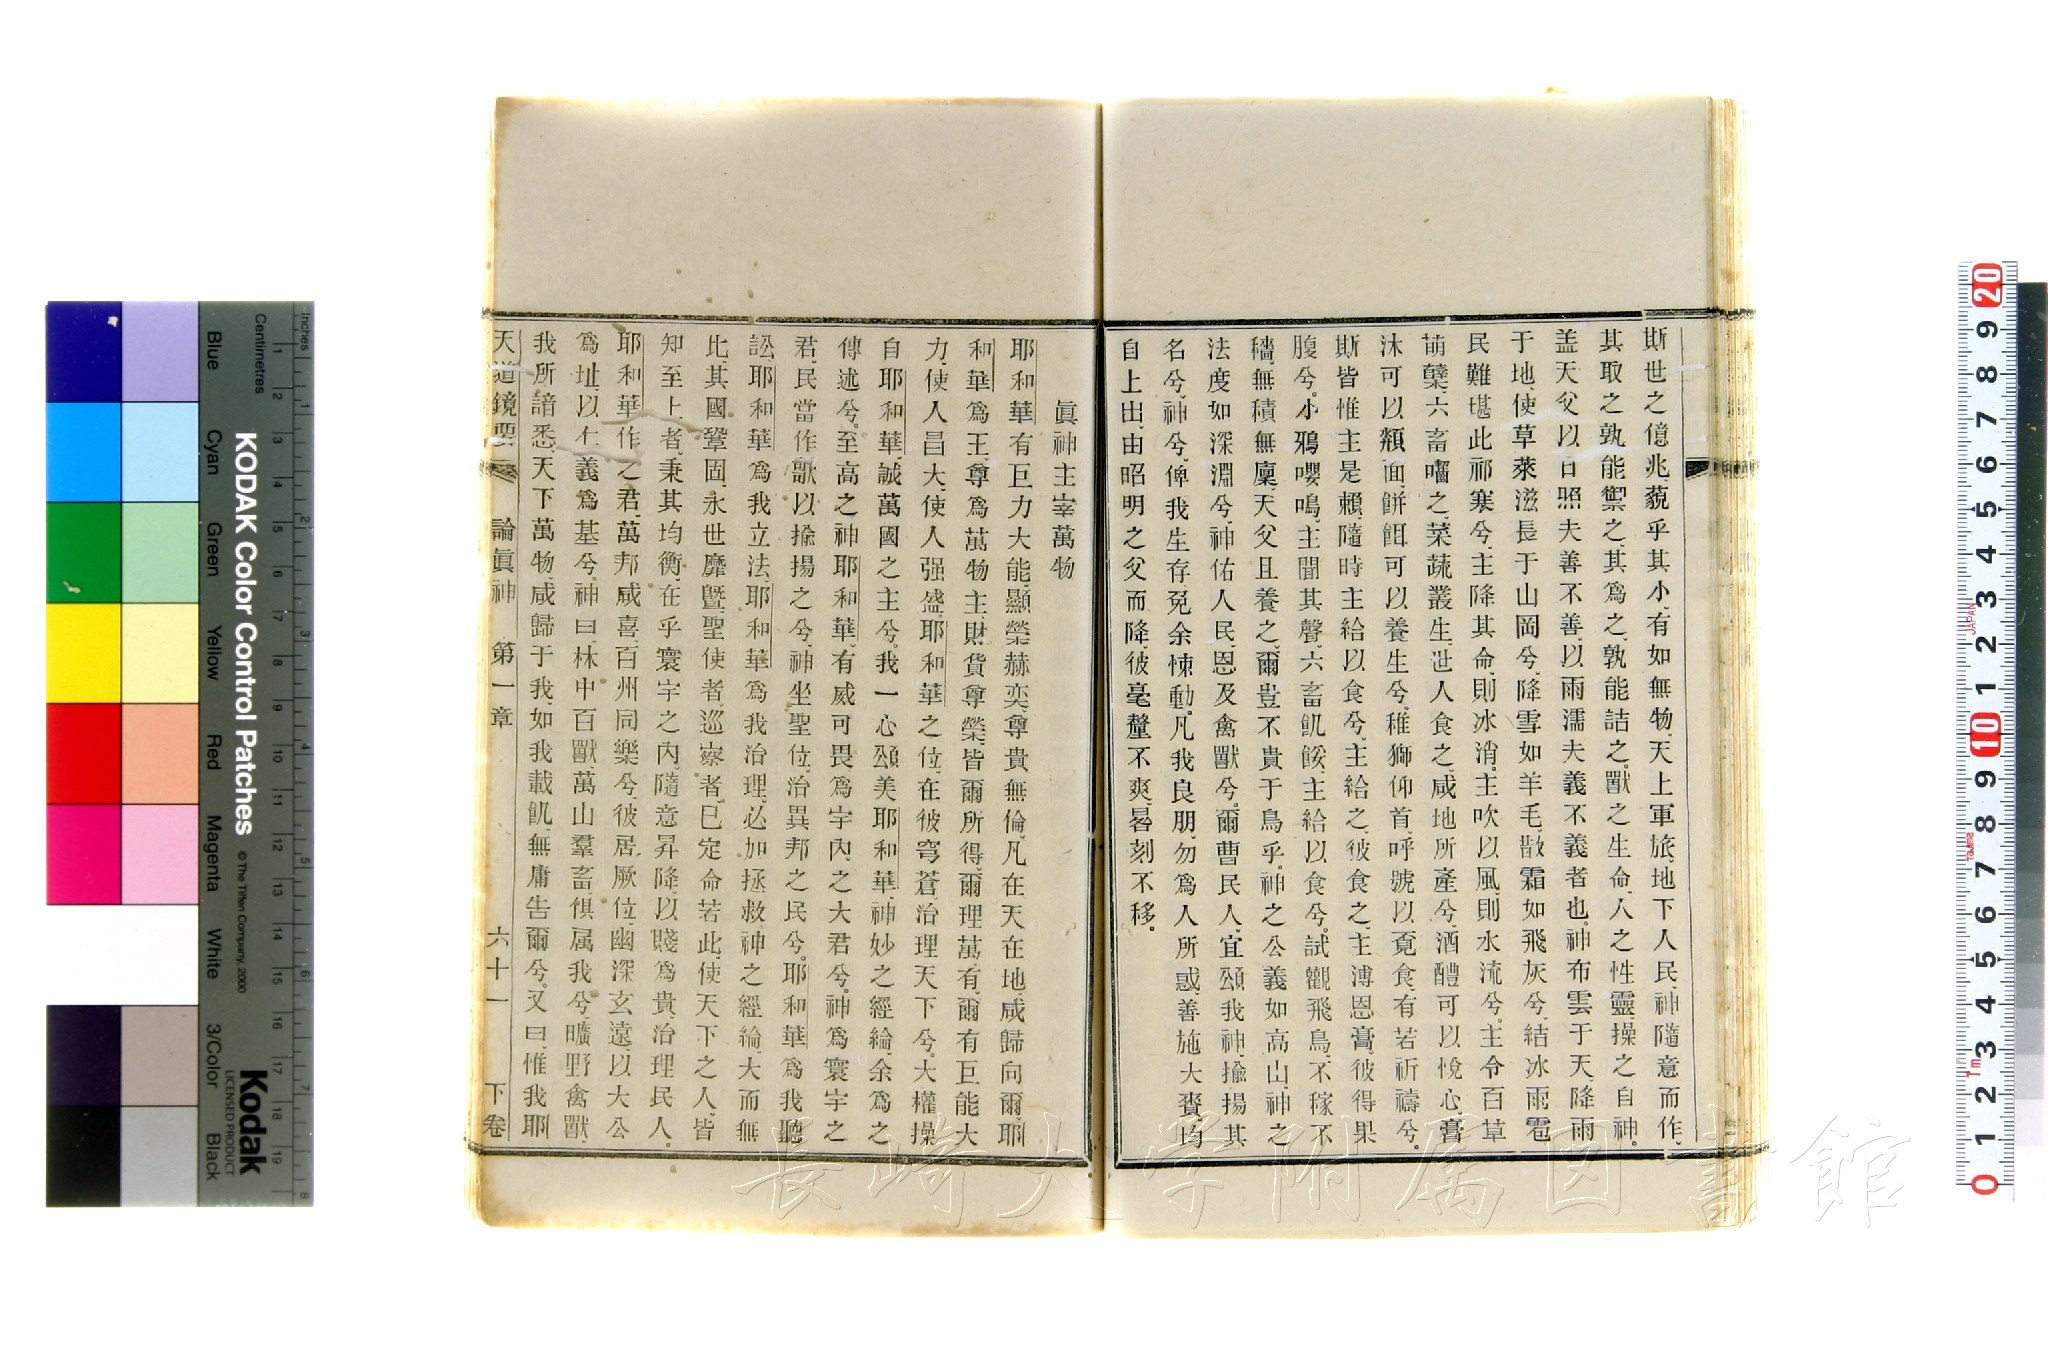 斯世之億兆、藐乎其小、有如無物、天上軍旅、地下人民、神隨意而作、
其取之孰能禦之、其爲之、孰能詰之、獸之生命、人之性靈、操之自神。
盖天父以日照夫善不善、以雨濡夫義不義者也。神布雲于天、降雨
于地、使草萊滋長于山岡兮、降雪如羊毛、散霜如飛灰兮、結冰雨雹
民難堪此祁寒兮、主降其命、則冰消。主吹以風則水流兮。主令百草
萌櫱、六畜囓之、菜蔬叢生、世人食之、咸地所產兮、酒醴可以悅心、膏
沐可以頮面、餅餌可以養生兮、稚獅仰首、呼號以覔食、有若祈禱兮。
斯皆惟主是賴、隨時主給以食兮、主給之、彼食之、主溥恩膏、彼得果
腹兮。小鴉嚶鳴、主聞其聲、六畜飢餒、主給以食兮。試觀飛鳥、不稼不
穡、無積無廩、天父且養之、爾豈不貴于鳥乎。神之公義如高山、神之
法度如深淵兮、神佑人民、恩及禽獸兮。爾曹民人、宜頌我神、揄揚其
名兮、神兮、俾我生存、免余悚動。凡我良朋、勿爲人所惑、善施大賚、均
自上出、由昭明之父而降、彼毫釐不爽、晷刻不移。
眞神主宰萬物
耶和華有巨力大能、顯榮赫奕、尊貴無倫、凡在天在地、咸歸向爾耶
和華爲王、尊爲萬物主、財貨尊榮、皆爾所得、爾理萬有、爾有巨能大
力、使人昌大、使人强盛、耶和華之位、在彼穹蒼、治理天下兮、大權操
自耶和華、誠萬國之主兮。我一心頌美耶和華、神妙之經綸、余爲之
傳述兮。至高之神耶和華、有威可畏、爲宇內之大君兮。神爲寰宇之
君、民當作歌以揄揚之兮、神坐聖位、治異邦之民兮。耶和華爲我聽
訟、耶和華爲我立法、耶和華爲我治理、必加拯救、神之經綸、大而無
比、其國鞏固、永世靡曁、聖使者、巡察者、已定命若此、使天下之人、皆
知至上者、秉其均衡、在乎寰宇之內、隨意昇降、以賤爲貴、治理民人。
耶和華作之君、萬邦咸喜、百州同樂兮、彼居厥位、幽深玄遠、以大公
爲址、以仁義爲基兮。神曰、林中百獸、萬山羣畜、俱属我兮、曠野禽獸、
我所諳悉、天下萬物、咸歸于我、如我載飢、無庸告爾兮。又曰、惟我耶
天道鏡要 論眞神 第一章 六十一 下卷
KODAK Color Control Patches
© The Tiffen Company, 2000
Kodak
LICENSED PRODUCT
Inches
Centimetres
Blue
Cyan
Green
Yellow
Red
Magenta
White
3/Color
Black
JAPAN
長崎大学附属図書館